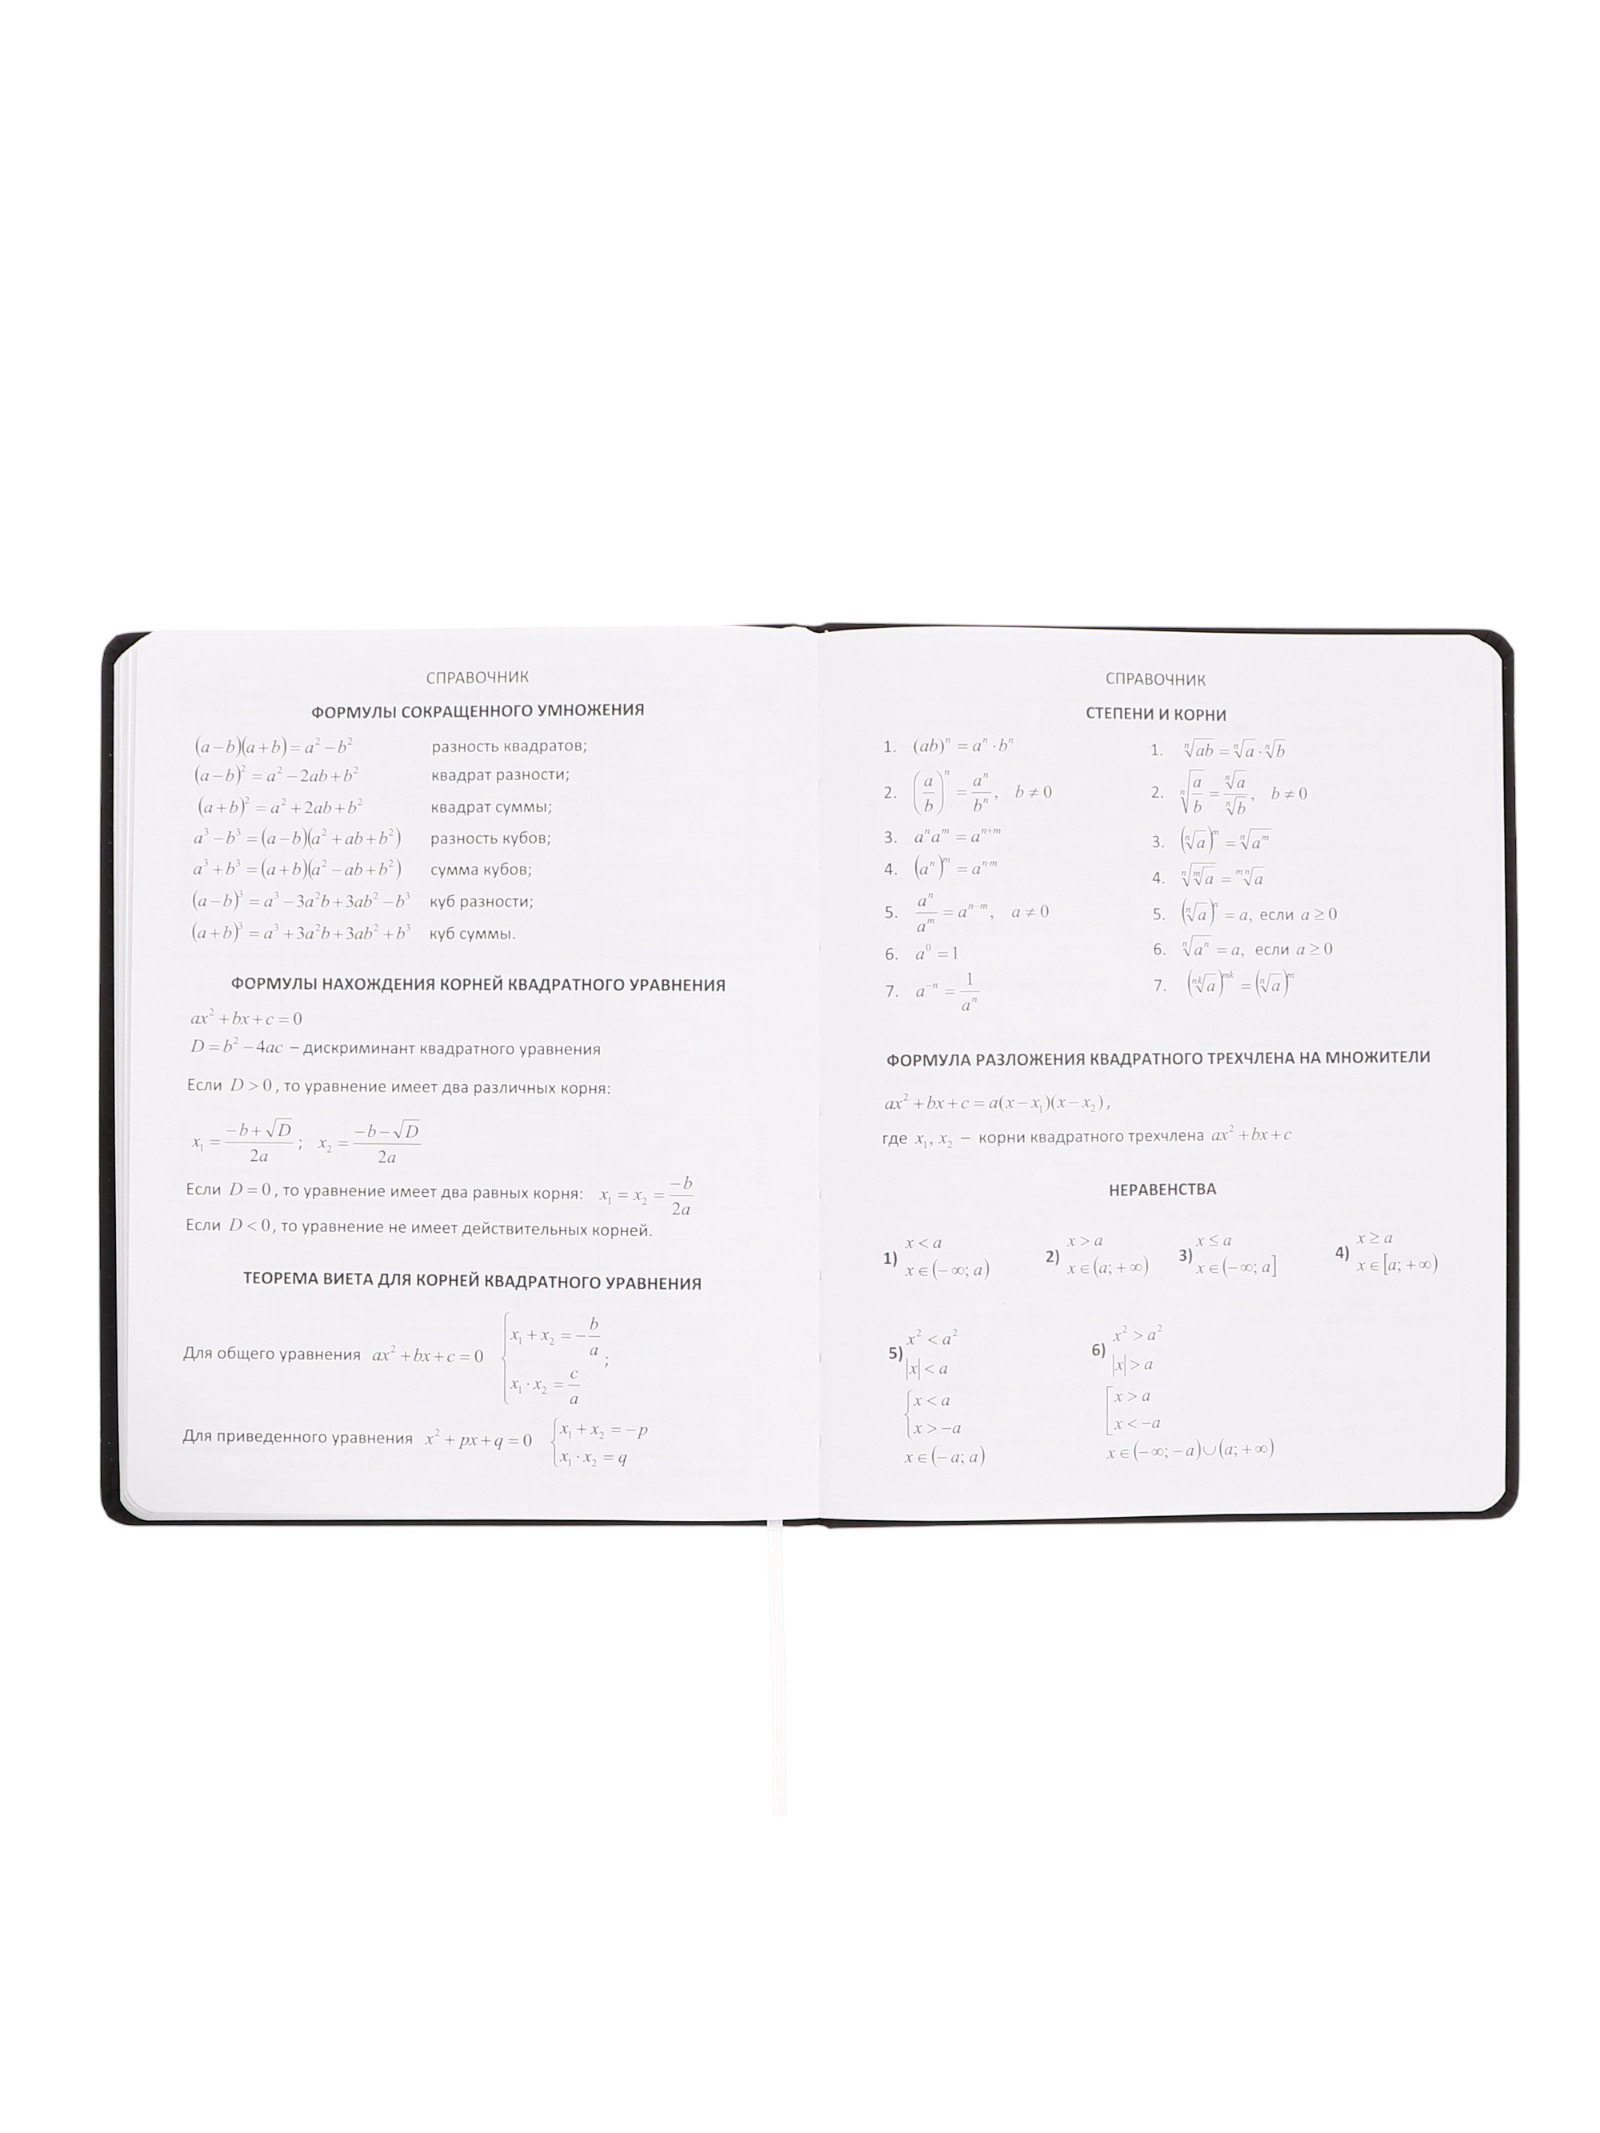 СПРАВОЧНИК
ФОРМУЛЫ СОКРАЩЕННОГО УМНОЖЕНИЯ
(a−b)(a+b)=a²−b² разность квадратов;
(a−b)²=a²−2ab+b² квадрат разности;
(a+b)²=a²+2ab+b² квадрат суммы;
a³−b³=(a−b)(a²+ab+b²) разность кубов;
a³+b³=(a+b)(a²−ab+b²) сумма кубов;
(a−b)³=a³−3a²b+3ab²−b³ куб разности;
(a+b)³=a³+3a²b+3ab²+b³ куб суммы.
ФОРМУЛЫ НАХОЖДЕНИЯ КОРНЕЙ КВАДРАТНОГО УРАВНЕНИЯ
ax²+bx+c=0
D=b²−4ac – дискриминант квадратного уравнения
Если D>0, то уравнение имеет два различных корня:
x₁=(−b+√D)/2a; x₂=(−b−√D)/2a
Если D=0, то уравнение имеет два равных корня: x₁=x₂=−b/2a
Если D<0, то уравнение не имеет действительных корней.
ТЕОРЕМА ВИЕТА ДЛЯ КОРНЕЙ КВАДРАТНОГО УРАВНЕНИЯ
Для общего уравнения ax²+bx+c=0 { x₁+x₂=−b/a
x₁·x₂=c/a ;
Для приведенного уравнения x²+px+q=0 { x₁+x₂=−p
x₁·x₂=q
СПРАВОЧНИК
СТЕПЕНИ И КОРНИ
1. (ab)ⁿ=aⁿ·bⁿ
2. (a/b)ⁿ=aⁿ/bⁿ, b≠0
3. aⁿaᵐ=aⁿ⁺ᵐ
4. (aⁿ)ᵐ=aⁿ·ᵐ
5. aⁿ/aᵐ=aⁿ⁻ᵐ, a≠0
6. a⁰=1
7. a⁻ⁿ=1/aⁿ
1. ⁿ√(ab)=ⁿ√a·ⁿ√b
2. ⁿ√(a/b)=ⁿ√a/ⁿ√b, b≠0
3. (ⁿ√a)ᵐ=ⁿ√(aᵐ)
4. ⁿ√(ᵐ√a)=ᵐⁿ√a
5. (ⁿ√a)ⁿ=a, если a≥0
6. ⁿ√(aⁿ)=a, если a≥0
7. (ⁿᵏ√a)ᵐᵏ=(ⁿ√a)ᵐ
ФОРМУЛА РАЗЛОЖЕНИЯ КВАДРАТНОГО ТРЕХЧЛЕНА НА МНОЖИТЕЛИ
ax²+bx+c=a(x−x₁)(x−x₂),
где x₁, x₂ – корни квадратного трехчлена ax²+bx+c
НЕРАВЕНСТВА
1) x<a
x∈(−∞; a)
2) x>a
x∈(a;+∞)
3) x≤a
x∈(−∞; a]
4) x≥a
x∈[a;+∞)
5) x²<a²
|x|<a
{ x<a
x>−a
x∈(−a; a)
6) x²>a²
|x|>a
[ x>a
x<−a
x∈(−∞;−a)∪(a;+∞)